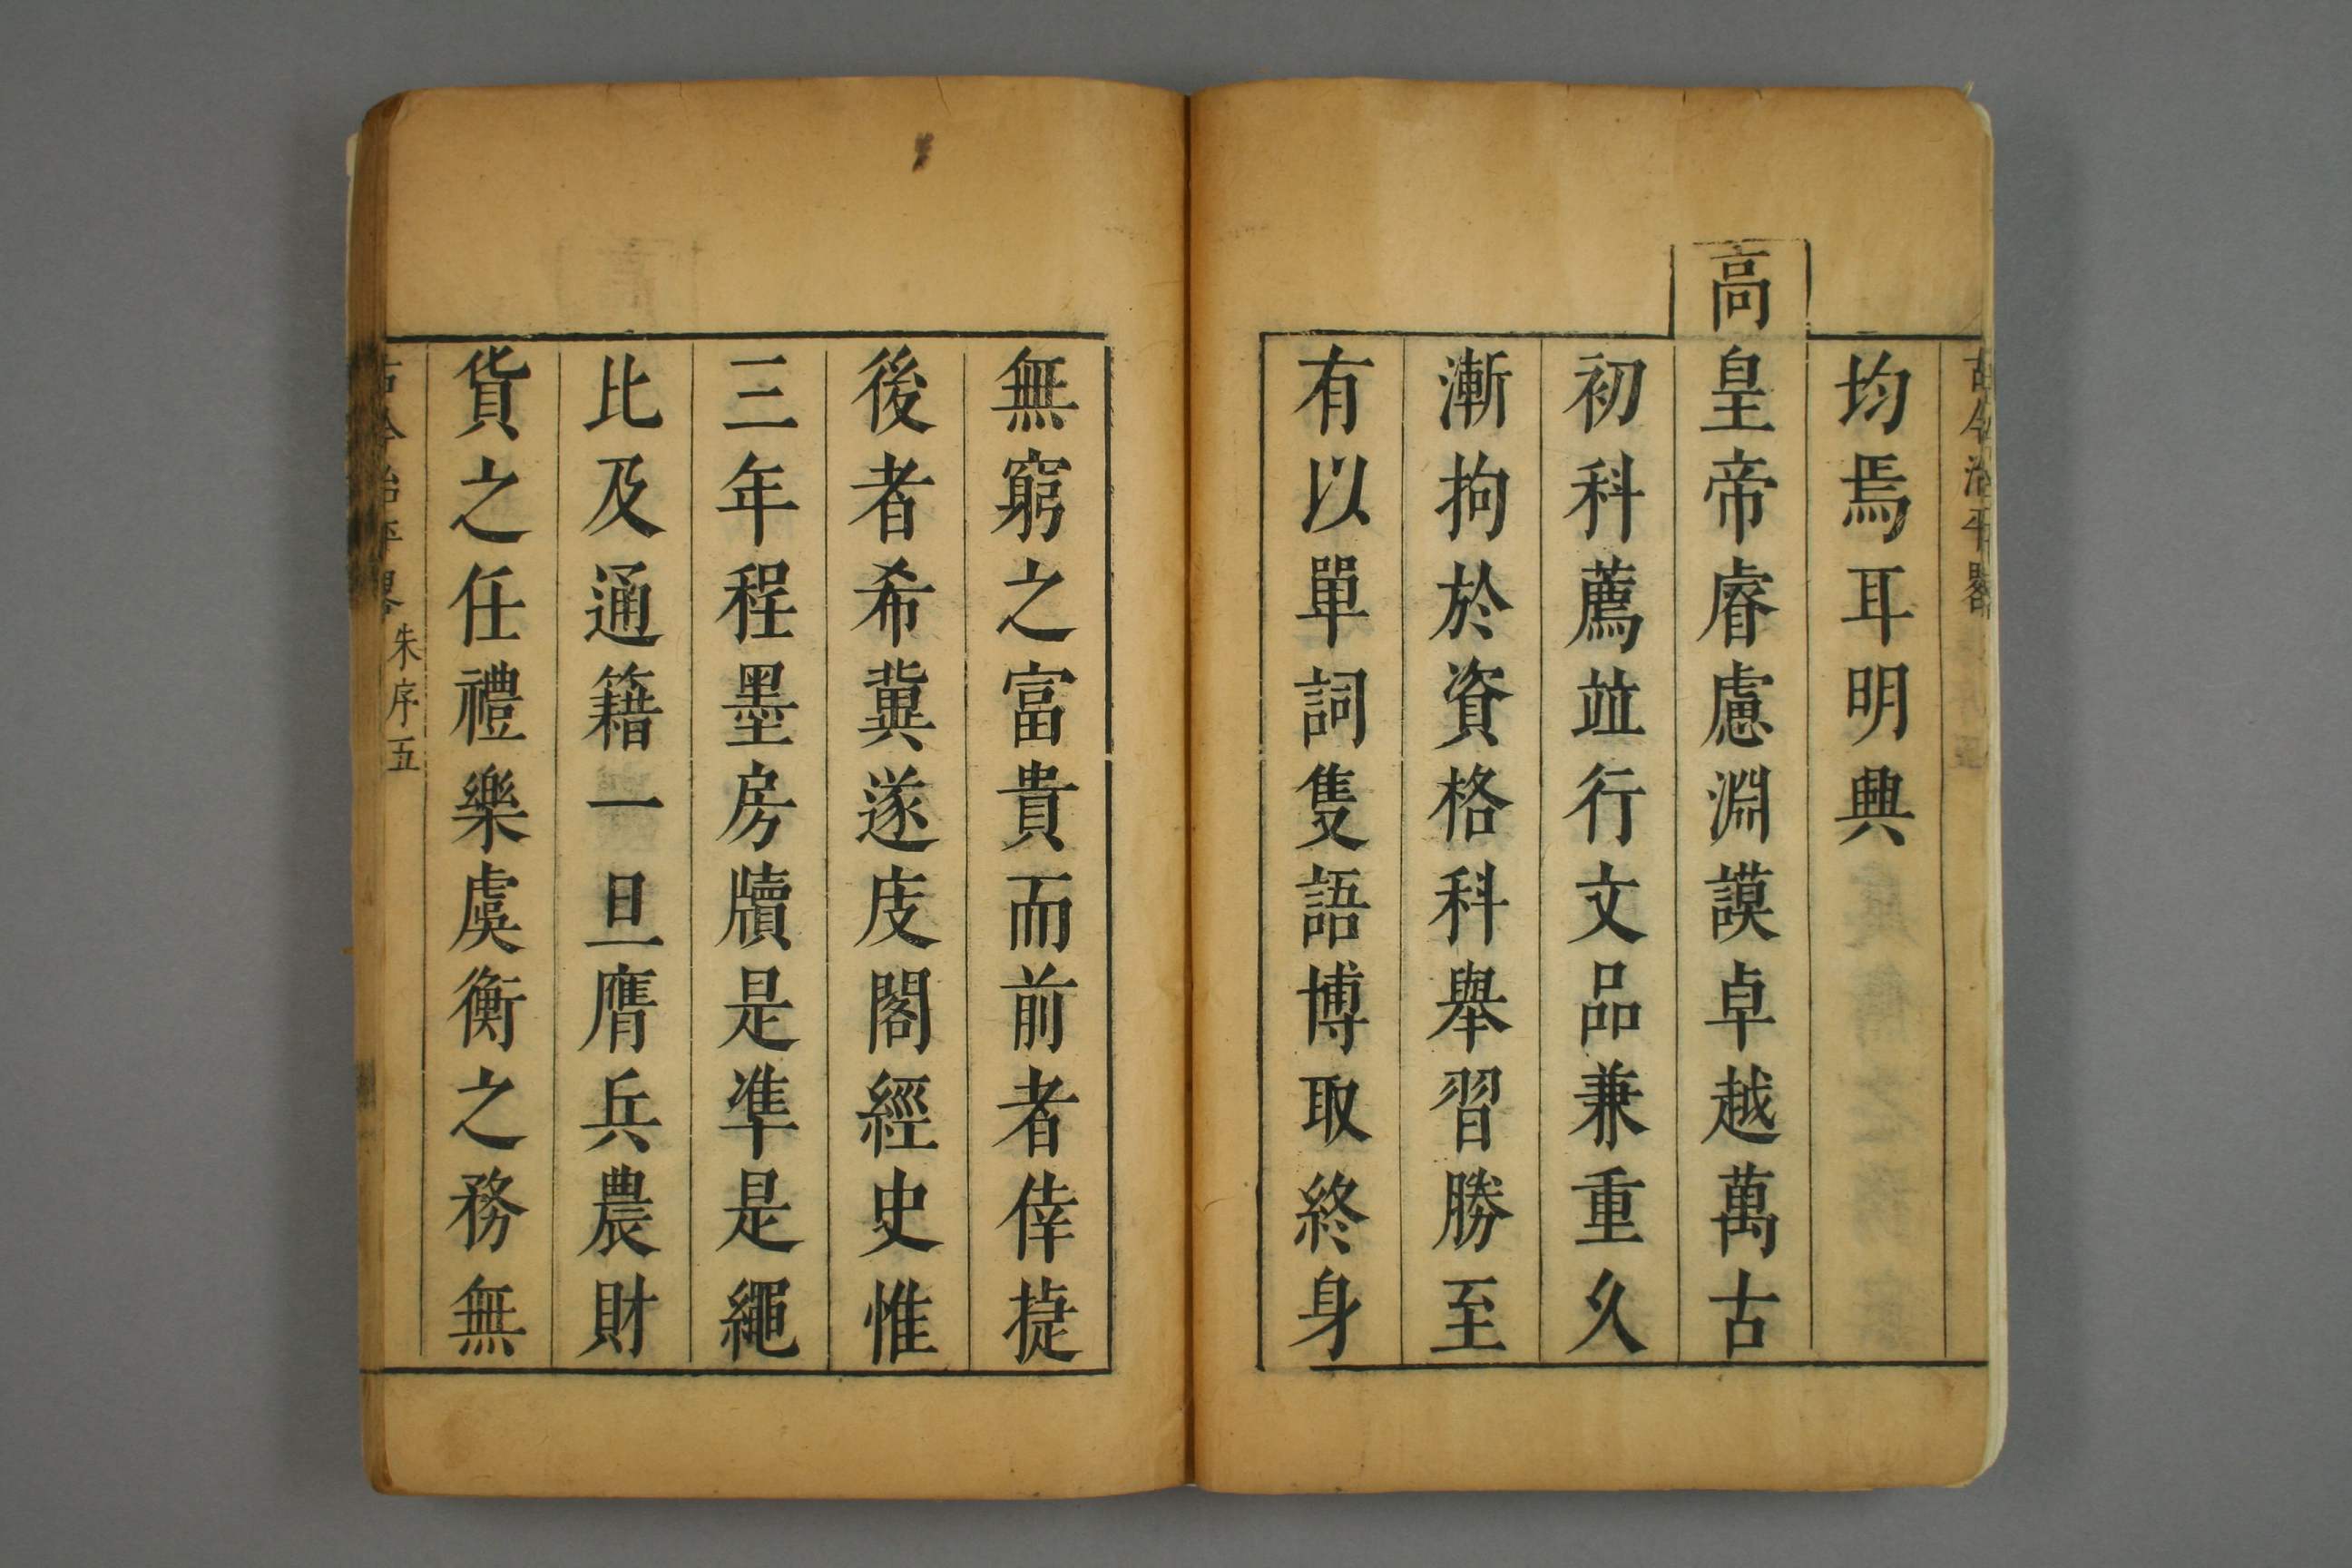 古今治平畧
均焉耳明興
高皇帝睿慮淵謨卓越萬古
初科薦竝行文品兼重久
漸拘於資格科舉習勝至
有以單詞隻語博取終身
無窮之富貴而前者倖捷
後者希冀遂庋閣經史惟
三年程墨房牘是凖是繩
比及通籍一旦膺兵農財
貨之任禮樂虞衡之務無
古今治平畧 朱序 五